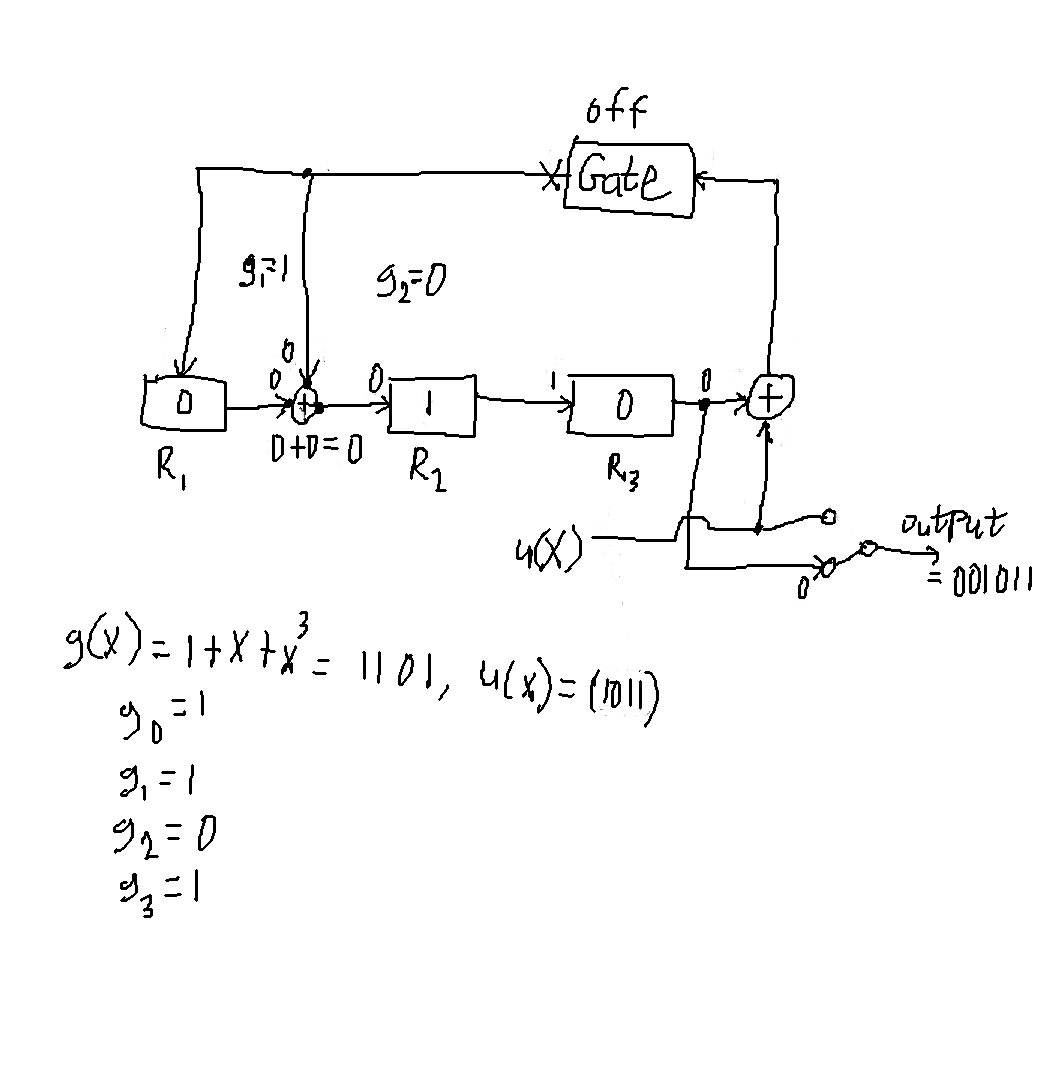 off
Gate
g₁=1
g₂=0
0
0
0
1
0
0
+
1
0
+
0+0=0
R₁
R₂
R₃
u(X)
output
0
= 001011
g(X) = 1+X+X³ = 1101, u(X) = (1011)
g₀ = 1
g₁ = 1
g₂ = 0
g₃ = 1